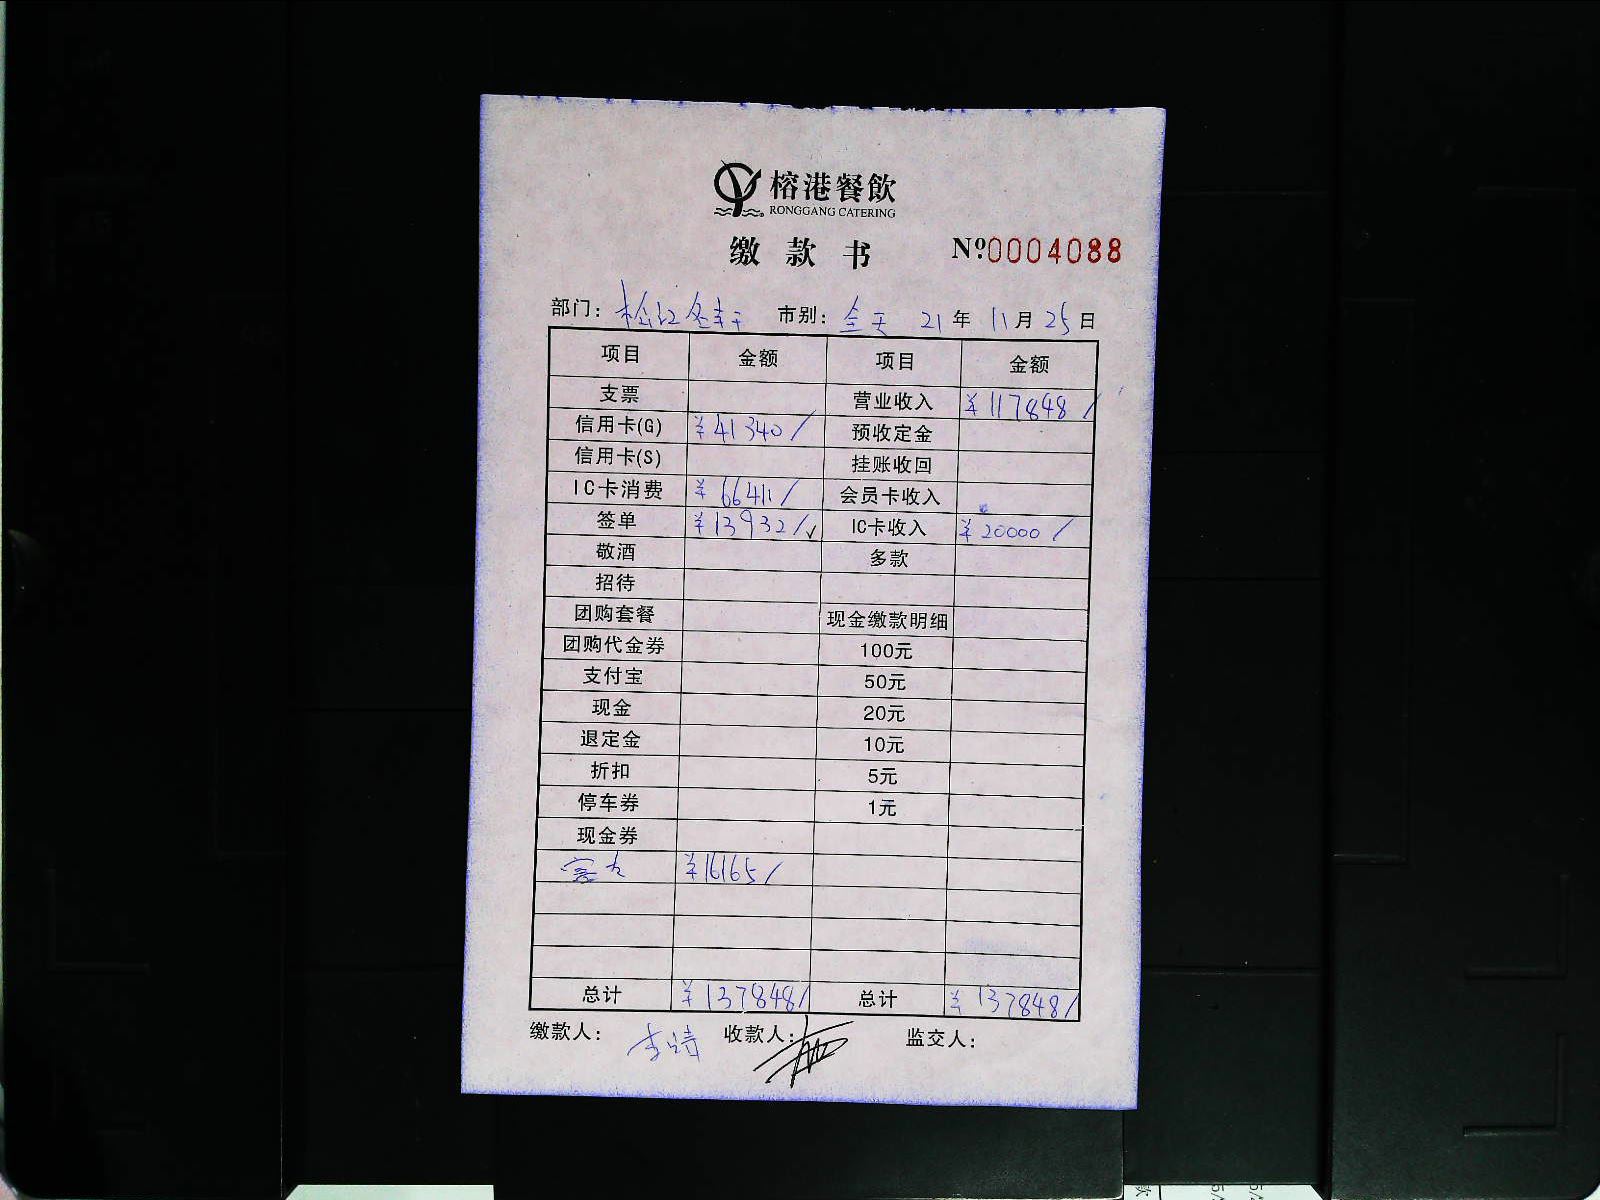 榕港餐飲
RONGGANG CATERING
缴款书 Nº 0004088
部门: 松江 市别: 全天 21年11月25日
项目 金额 项目 金额
支票 营业收入 ¥117848/
信用卡(G) ¥41340/ 预收定金
信用卡(S) 挂账收回
IC卡消费 ¥66411/ 会员卡收入
签单 ¥13932/√ IC卡收入 ¥20000/
敬酒 多款
招待
团购套餐 现金缴款明细
团购代金券 100元
支付宝 50元
现金 20元
退定金 10元
折扣 5元
停车券 1元
现金券
¥16165/
总计 ¥137848/ 总计 ¥137848/
缴款人: 收款人: 监交人: